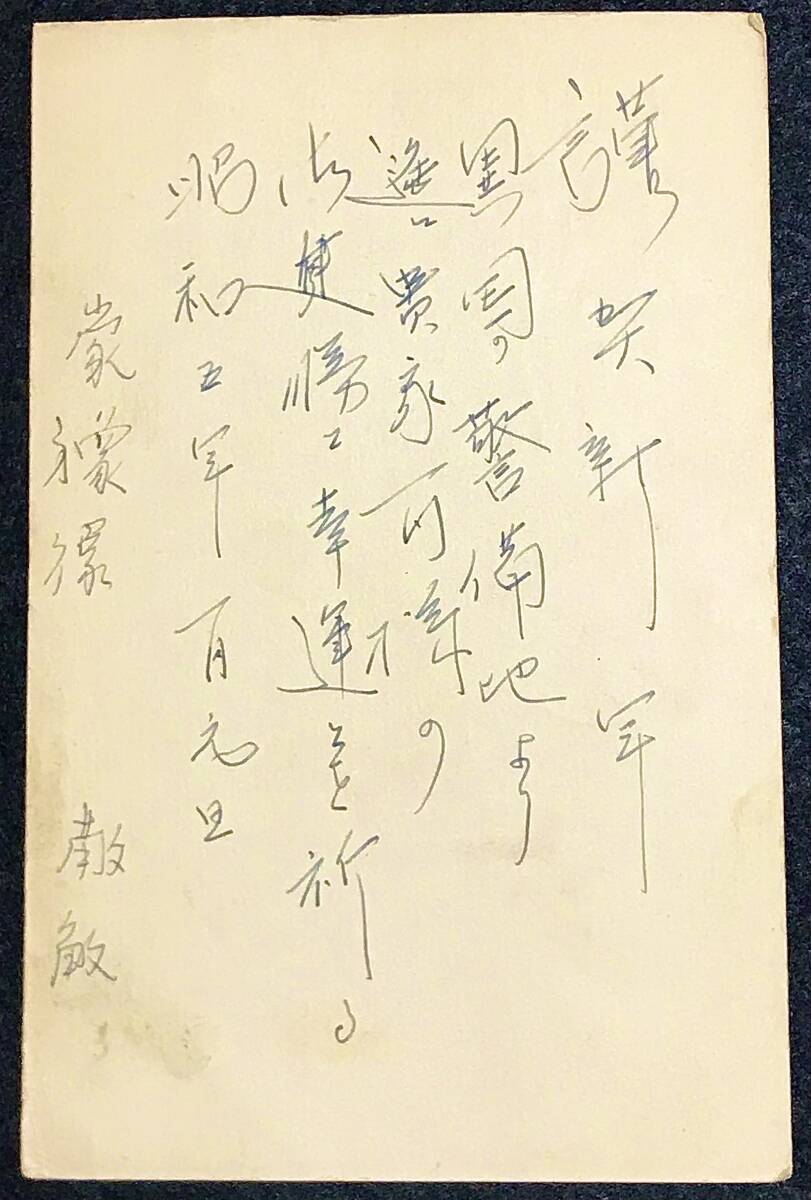 謹賀新年
異国の警備地より
遙に貴家一同様の
御健勝と幸運を祈る
昭和五年一月元旦
蒙 敬